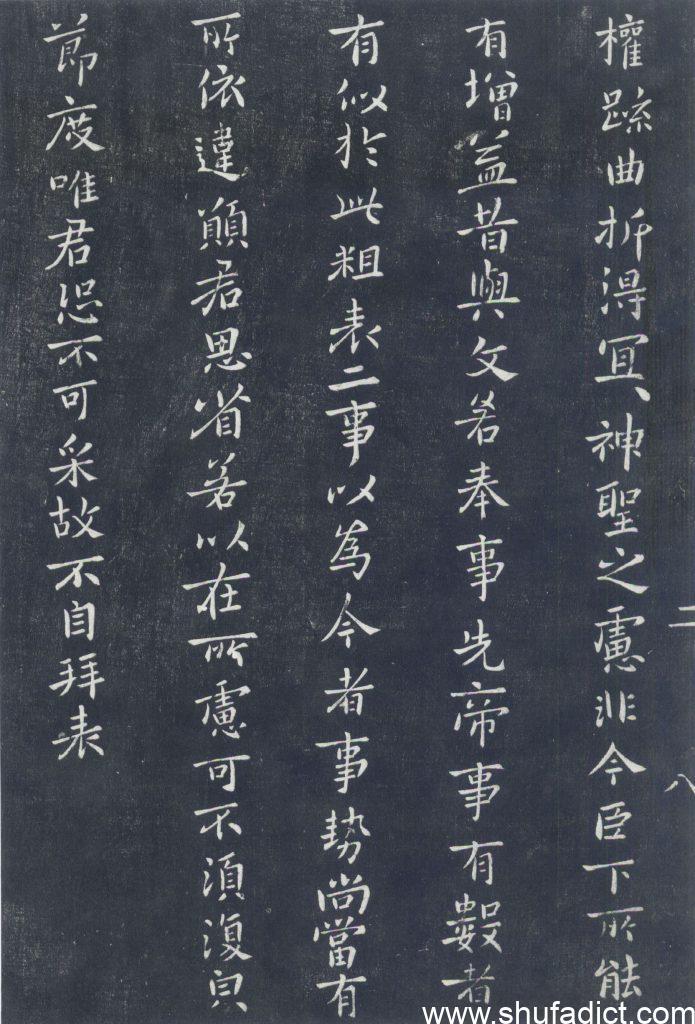 權疏曲折得冥神聖之慮非今臣下所能
有增益昔與文若奉事先帝事有數者
有似於此粗表二事以為今者事勢尚當有
所依違願君思省若以在所慮可不須復貌
節度唯君恐不可采故不自拜表
二
八
www.shufadict.com